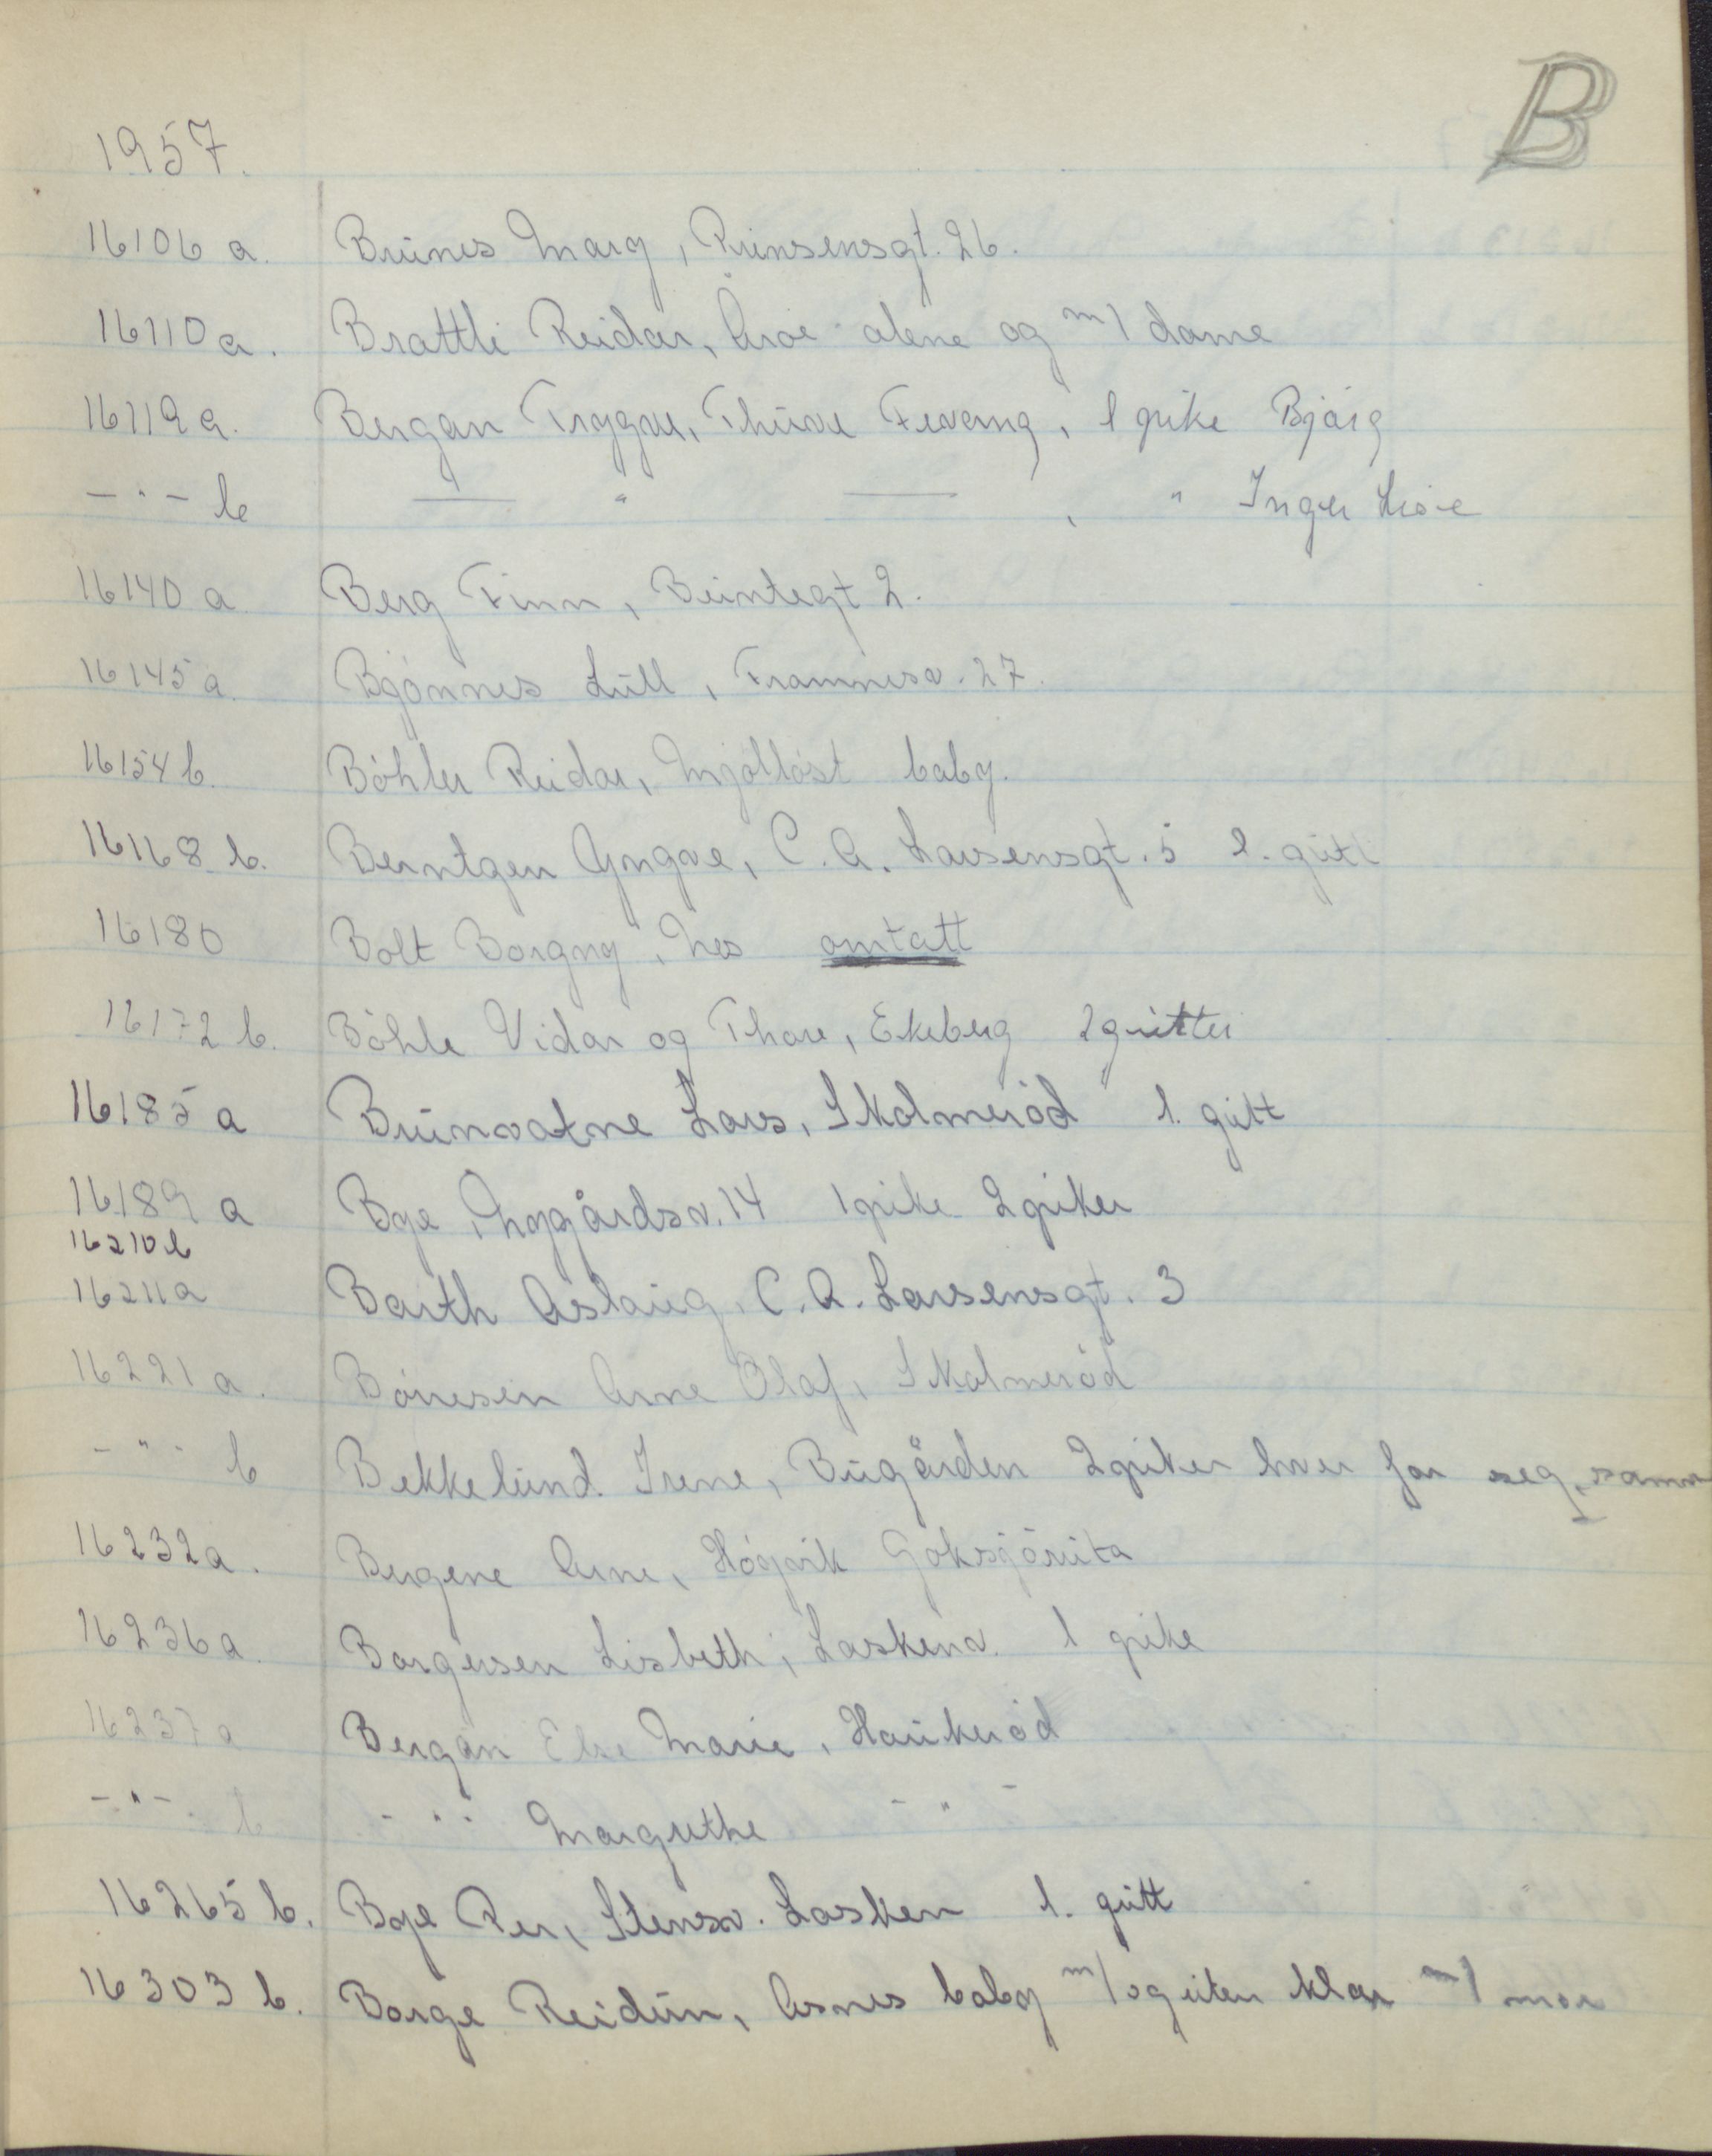 B
1957.
16106 a. Brunes Marg, Prinsensgt. 26.
16110 a. Brattli Reidar, Aroe alene og m/ dame
16119 a. Bergan Trygve, Thurve Feverang, 1 pike Bjørg
— " — b — " — , " Inger Lise
16140 a. Berg Finn, Beintegt 2.
16145 a. Bjønnes Lull, Framnesv. 27.
16154 b. Bøhler Reidar, Mjølløst baby.
16168 b. Berntgen Yngve, C. A. Larsensgt. 5 1. gutt
16180 Bolt Borgny, Nes omtatt
16172 b. Bøhle Vidar og Thore, Ekeberg 2 gutter
16185 a Brunvatne Lars, Skolmerød 1. gutt
16189 a Bye, Nygårdsv. 14 1 pike 2 piker
16210 b
16211 a Barth Aslaug, C. A. Larsensgt. 3
16221 a. Børresen Arne Olaf, Skolmerød
- " - b Bekkelund Irene, Bugården 2 piker hver for seg, samm
16232 a. Bergene Arne, Høgvik Goksjøruta
16236 a. Borgersen Lisbeth, Laskenv. 1 pike
16237 a Bergan Else Marie, Haukerød
- " - b - " - Margrethe - " -
16265 b. Bye Per, Stensv. Lasken 1. gutt
16303 b. Borge Reidun, Asnes baby m/ og uten klær m/ mor